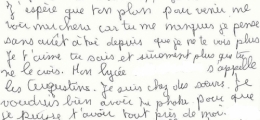 J'espère que ton plan pour venir me
voir marchera car tu me manques je pense
sans arrêt à toi depuis que je ne te vois plus
Je t'aime tu sais et sûrement plus que tu
ne le crois. Mon lycée s'appelle
les Augustins. Je suis chez des sœurs. Je
voudrais bien avoir ta photo pour que
je puisse t'avoir tout près de moi.